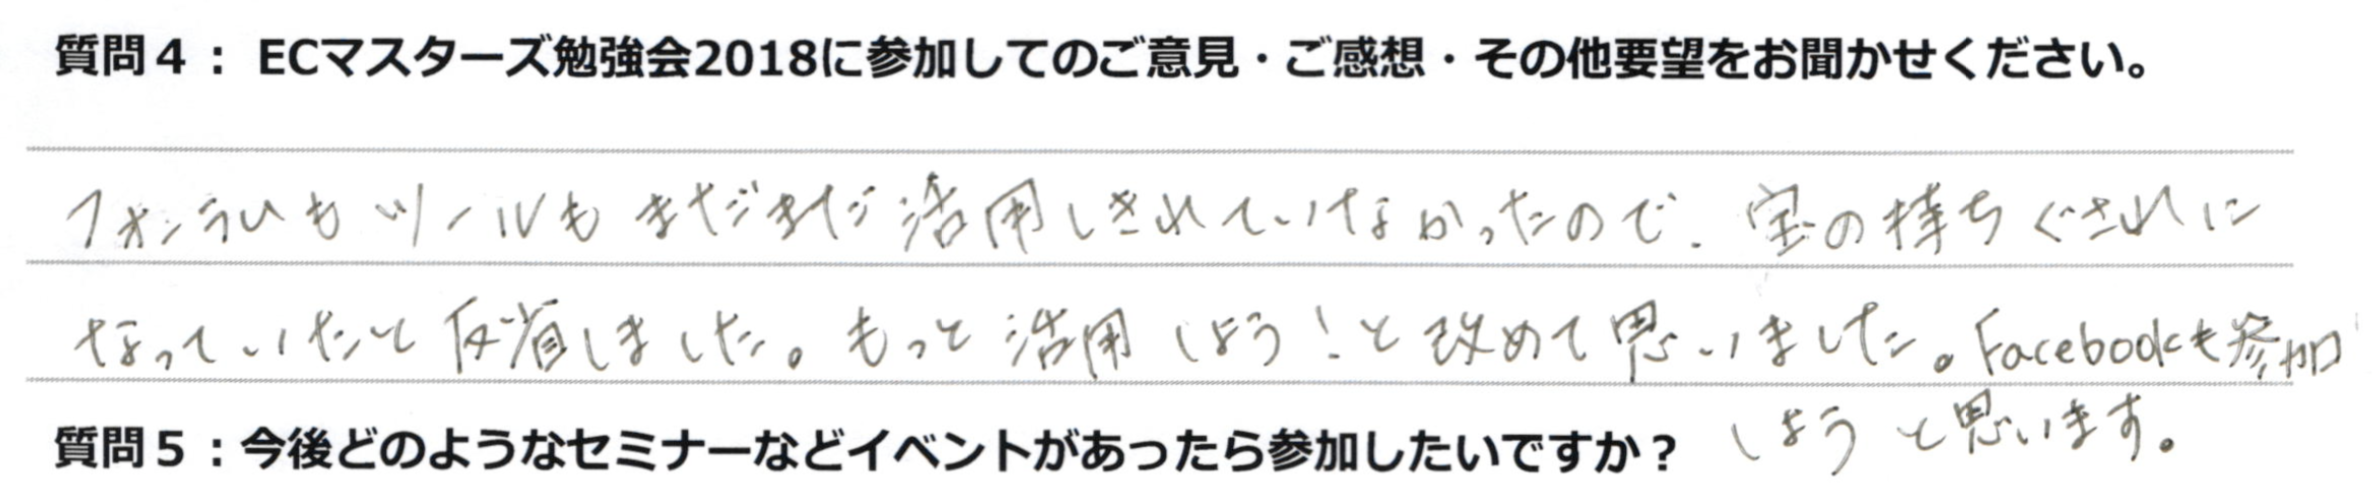 質問４： ECマスターズ勉強会2018に参加してのご意見・ご感想・その他要望をお聞かせください。
フォンラひもツールもまだまだ活用しきれていなかったので、宝の持ちぐされに
なっていたと反省しました。もっと活用しよう！と改めて思いました。Facebookも参加
しようと思います。
質問５：今後どのようなセミナーなどイベントがあったら参加したいですか？